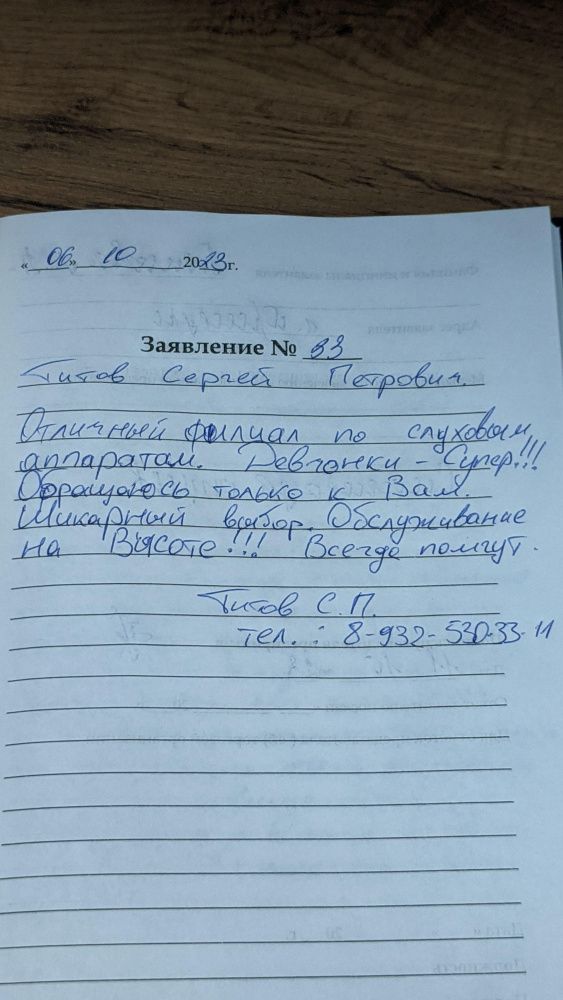 «06» 10 2023г.
Заявление № 33
Титов Сергей Петрович.
Отличный филиал по слуховым
аппаратам. Девчонки - Супер!!!
Обращаюсь только к Вам.
Шикарный выбор. Обслуживание
на Высоте!!! Всегда помгут.
Титов С.П.
тел. : 8-932-530-33-11